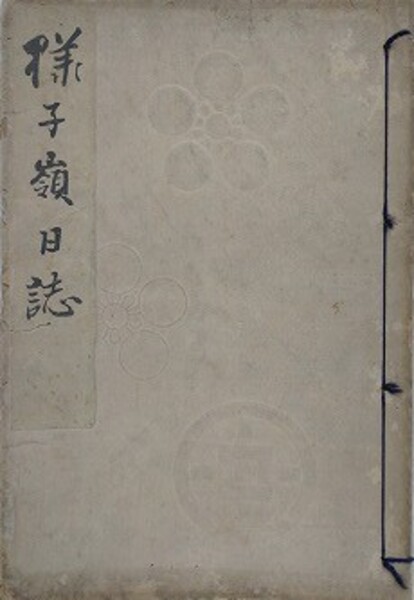 様子嶺日誌